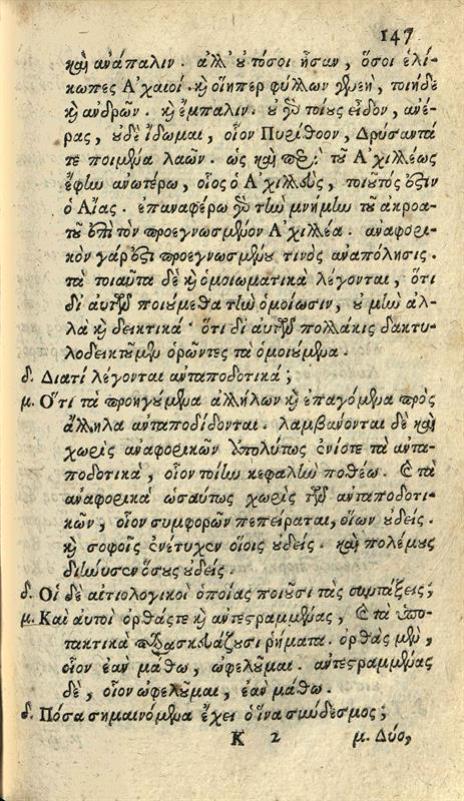 147
καὶ ἀνάπαλιν. ἀλλ' ὁ τόσοι ἦσαν, ὅσοι ἑλί-
κωπες Ἀχαιοί. καὶ οἵηπερ φύλλων γενεὴ, τοιήδε
καὶ ἀνδρῶν. καὶ ἔμπαλιν. οὐ γὰρ τοίους εἶδον, ἀνέ-
ρας, οὐδὲ ἴδωμαι, οἷον Πυρίθοον, Δρύσαντά
τε ποιμένα λαῶν. ὡς καὶ περὶ τοῦ Ἀχιλλέως
ἔφην ἀνωτέρω, οἷος ὁ Ἀχιλλεὺς, τοιοῦτός ἐστιν
ὁ Αἴας. ἐπαναφέρω γὰρ τὴν μνήμην τοῦ ἀκροα-
τοῦ ἐπὶ τὸν προεγνωσμένον Ἀχιλλέα. ἀναφορι-
κὸν γάρ ἐστι προεγνωσμένου τινὸς ἀναπόλησις.
τὰ τοιαῦτα δὲ καὶ ὁμοιωματικὰ λέγονται, ὅτι
δι' αὐτῶν ποιούμεθα τὴν ὁμοίωσιν, οὐ μὴν ἀλ-
λὰ καὶ δεικτικά· ὅτι δι' αὐτῶν πολλάκις δακτυ-
λοδεικτοῦμεν ὁρῶντες τὰ ὁμοιούμενα.
δ. Διατί λέγονται ἀνταποδοτικά;
μ. Ὅτι τὰ προηγούμενα ἀλλήλων καὶ ἐπαγόμενα πρὸς
ἄλληλα ἀνταποδίδονται. λαμβάνονται δὲ καὶ
χωρὶς ἀναφορικῶν ἀπολύτως ἐνίοτε τὰ ἀντα-
ποδοτικὰ, οἷον τοίην κεφαλὴν ποθέω. καὶ τὰ
ἀναφορικὰ ὡσαύτως χωρὶς τῶν ἀνταποδοτι-
κῶν, οἷον συμφορῶν πεπείραται, οἵων οὐδείς.
καὶ σοφοῖς ἐνέτυχεν οἵοις οὐδείς. καὶ πολέμους
διήνυσεν ὅσους οὐδείς.
δ. Οἱ δὲ αἰτιολογικοὶ ὁποίας ποιοῦσι τὰς συντάξεις;
μ. Καὶ αὐτοὶ ὀρθάς τε καὶ ἀντεστραμμένας, καὶ τὰ ὑπο-
τακτικὰ παρασκευάζουσι ῥήματα. ὀρθὰς μὲν,
οἷον ἐὰν μάθω, ὠφελοῦμαι. ἀντεστραμμένας
δὲ, οἷον ὠφελοῦμαι, ἐὰν μάθω.
δ. Πόσα σημαινόμενα ἔχει ὁ ἵνα σύνδεσμος;
Κ 2 μ. Δύο,